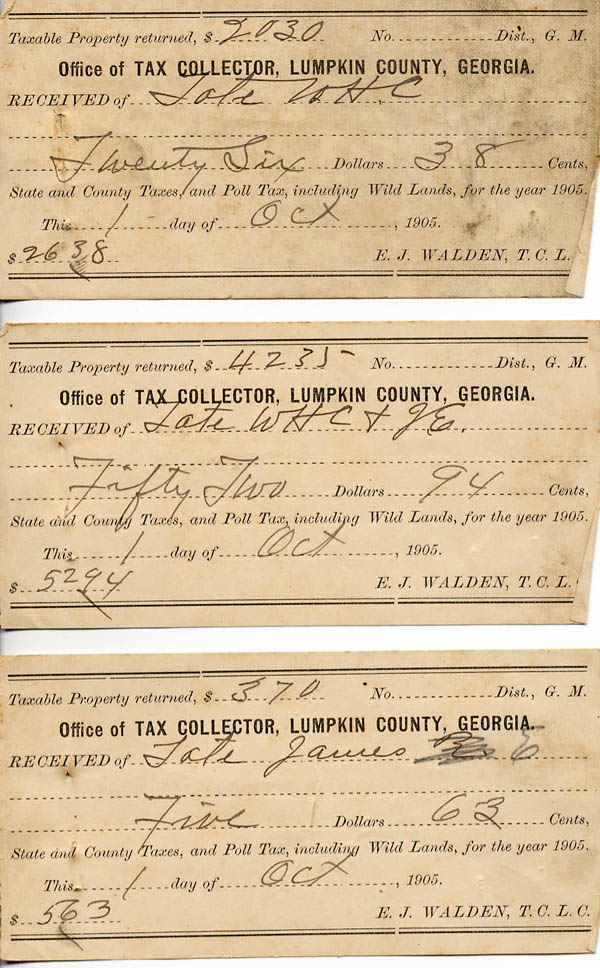 Taxable Property returned, $ 2030 No. Dist., G. M.
Office of TAX COLLECTOR, LUMPKIN COUNTY, GEORGIA.
RECEIVED of Tate W H. C
Twenty Six Dollars 38 Cents,
State and County Taxes, and Poll Tax, including Wild Lands, for the year 1905.
This 1 day of Oct, 1905.
$ 26 38 E. J. WALDEN, T. C. L.
Taxable Property returned, $ 4235 No. Dist., G. M.
Office of TAX COLLECTOR, LUMPKIN COUNTY, GEORGIA.
RECEIVED of Tate W H C & J E.
Fifty Two Dollars 94 Cents,
State and County Taxes, and Poll Tax, including Wild Lands, for the year 1905.
This 1 day of Oct, 1905.
$ 52 94 E. J. WALDEN, T. C. L.
Taxable Property returned, $ 370 No. Dist., G. M.
Office of TAX COLLECTOR, LUMPKIN COUNTY, GEORGIA.
RECEIVED of Tate James E
Five Dollars 63 Cents,
State and County Taxes, and Poll Tax, including Wild Lands, for the year 1905.
This 1 day of Oct, 1905.
$ 5 63 E. J. WALDEN, T. C. L. C.